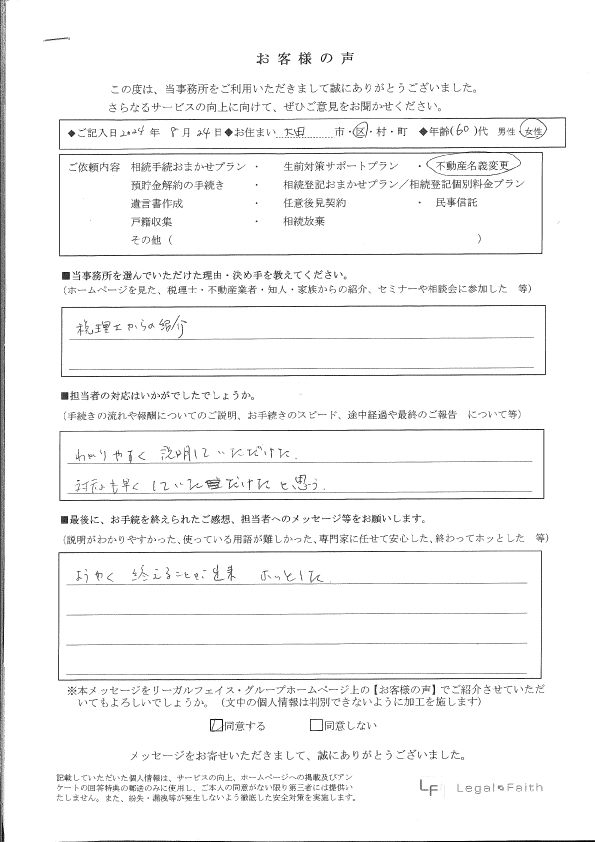 お客様の声
この度は、当事務所をご利用いただきまして誠にありがとうございました。
さらなるサービスの向上に向けて、ぜひご意見をお聞かせください。
◆ご記入日2024年 8月24日◆お住まい 大田 市・区・村・町 ◆年齢(60)代 男性・女性
ご依頼内容 相続手続おまかせプラン ・ 生前対策サポートプラン ・ 不動産名義変更
預貯金解約の手続き ・ 相続登記おまかせプラン／相続登記個別料金プラン
遺言書作成 ・ 任意後見契約 ・ 民事信託
戸籍収集 ・ 相続放棄
その他（ ）
■当事務所を選んでいただけた理由・決め手を教えてください。
（ホームページを見た、税理士・不動産業者・知人・家族からの紹介、セミナーや相談会に参加した 等）
税理士からの紹介
■担当者の対応はいかがでしたでしょうか。
（手続きの流れや報酬についてのご説明、お手続きのスピード、途中経過や最終のご報告 について等）
わかりやすく 説明していただけた.
対応も早くしていただけたと思う.
■最後に、お手続を終えられたご感想、担当者へのメッセージ等をお願いします。
（説明がわかりやすかった、使っている用語が難しかった、専門家に任せて安心した、終わってホッとした 等）
ようやく 終えることが出来 ホッとした.
※本メッセージをリーガルフェイス・グループホームページ上の【お客様の声】でご紹介させていただ
いてもよろしいでしょうか。（文中の個人情報は判別できないように加工を施します）
同意する 同意しない
メッセージをお寄せいただきまして、誠にありがとうございました。
記載していただいた個人情報は、サービスの向上、ホームページへの掲載及びアン
ケートの回答特典の郵送のみに使用し、ご本人の同意がない限り第三者には提供い
たしません。また、紛失・漏洩等が発生しないよう徹底した安全対策を実施します。
LF Legal Faith